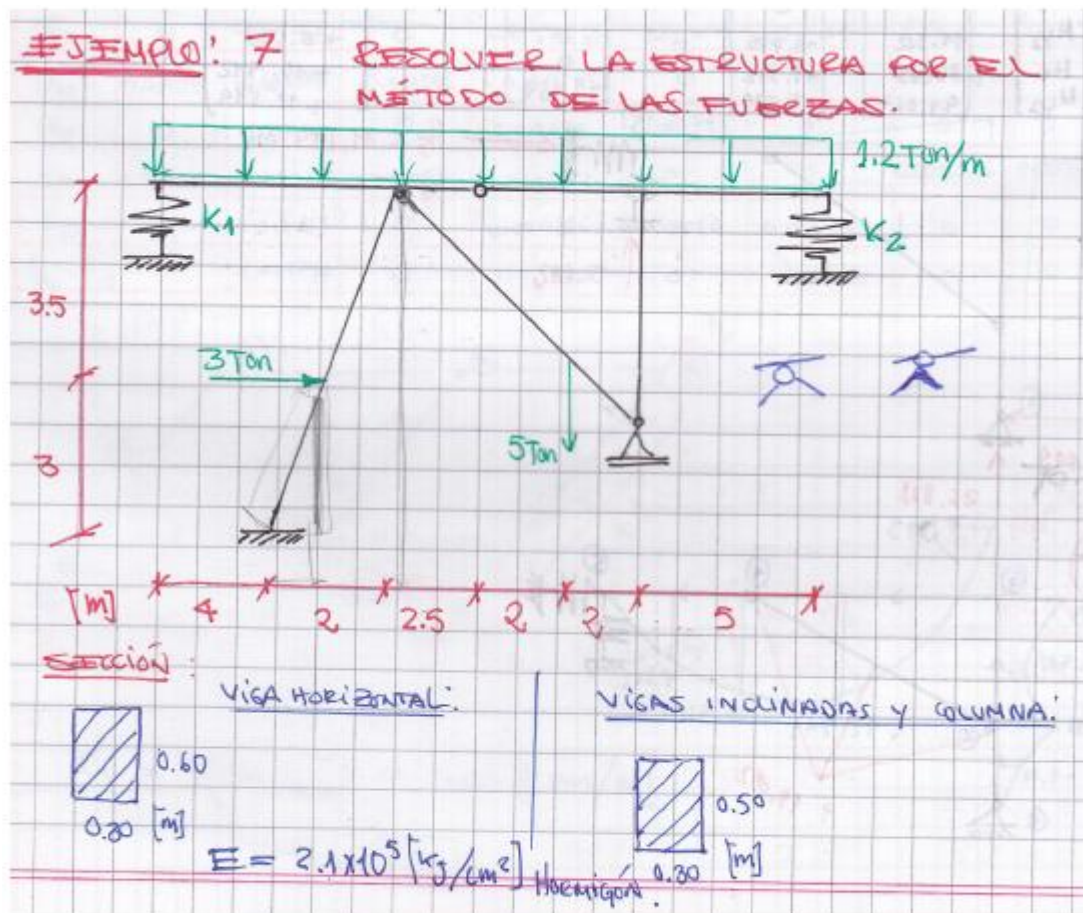 EJEMPLO: 7 RESOLVER LA ESTRUCTURA POR EL
MÉTODO DE LAS FUERZAS.
1.2 Ton/m
K1
K2
3.5
3 Ton
5 Ton
3
[m] 4 2 2.5 2 2 5
SECCIÓN:
VIGA HORIZONTAL:
VIGAS INCLINADAS Y COLUMNA:
0.60
0.50
[m]
[m]
0.30
E = 2.1x10⁵ [kg/cm²] HORMIGÓN.